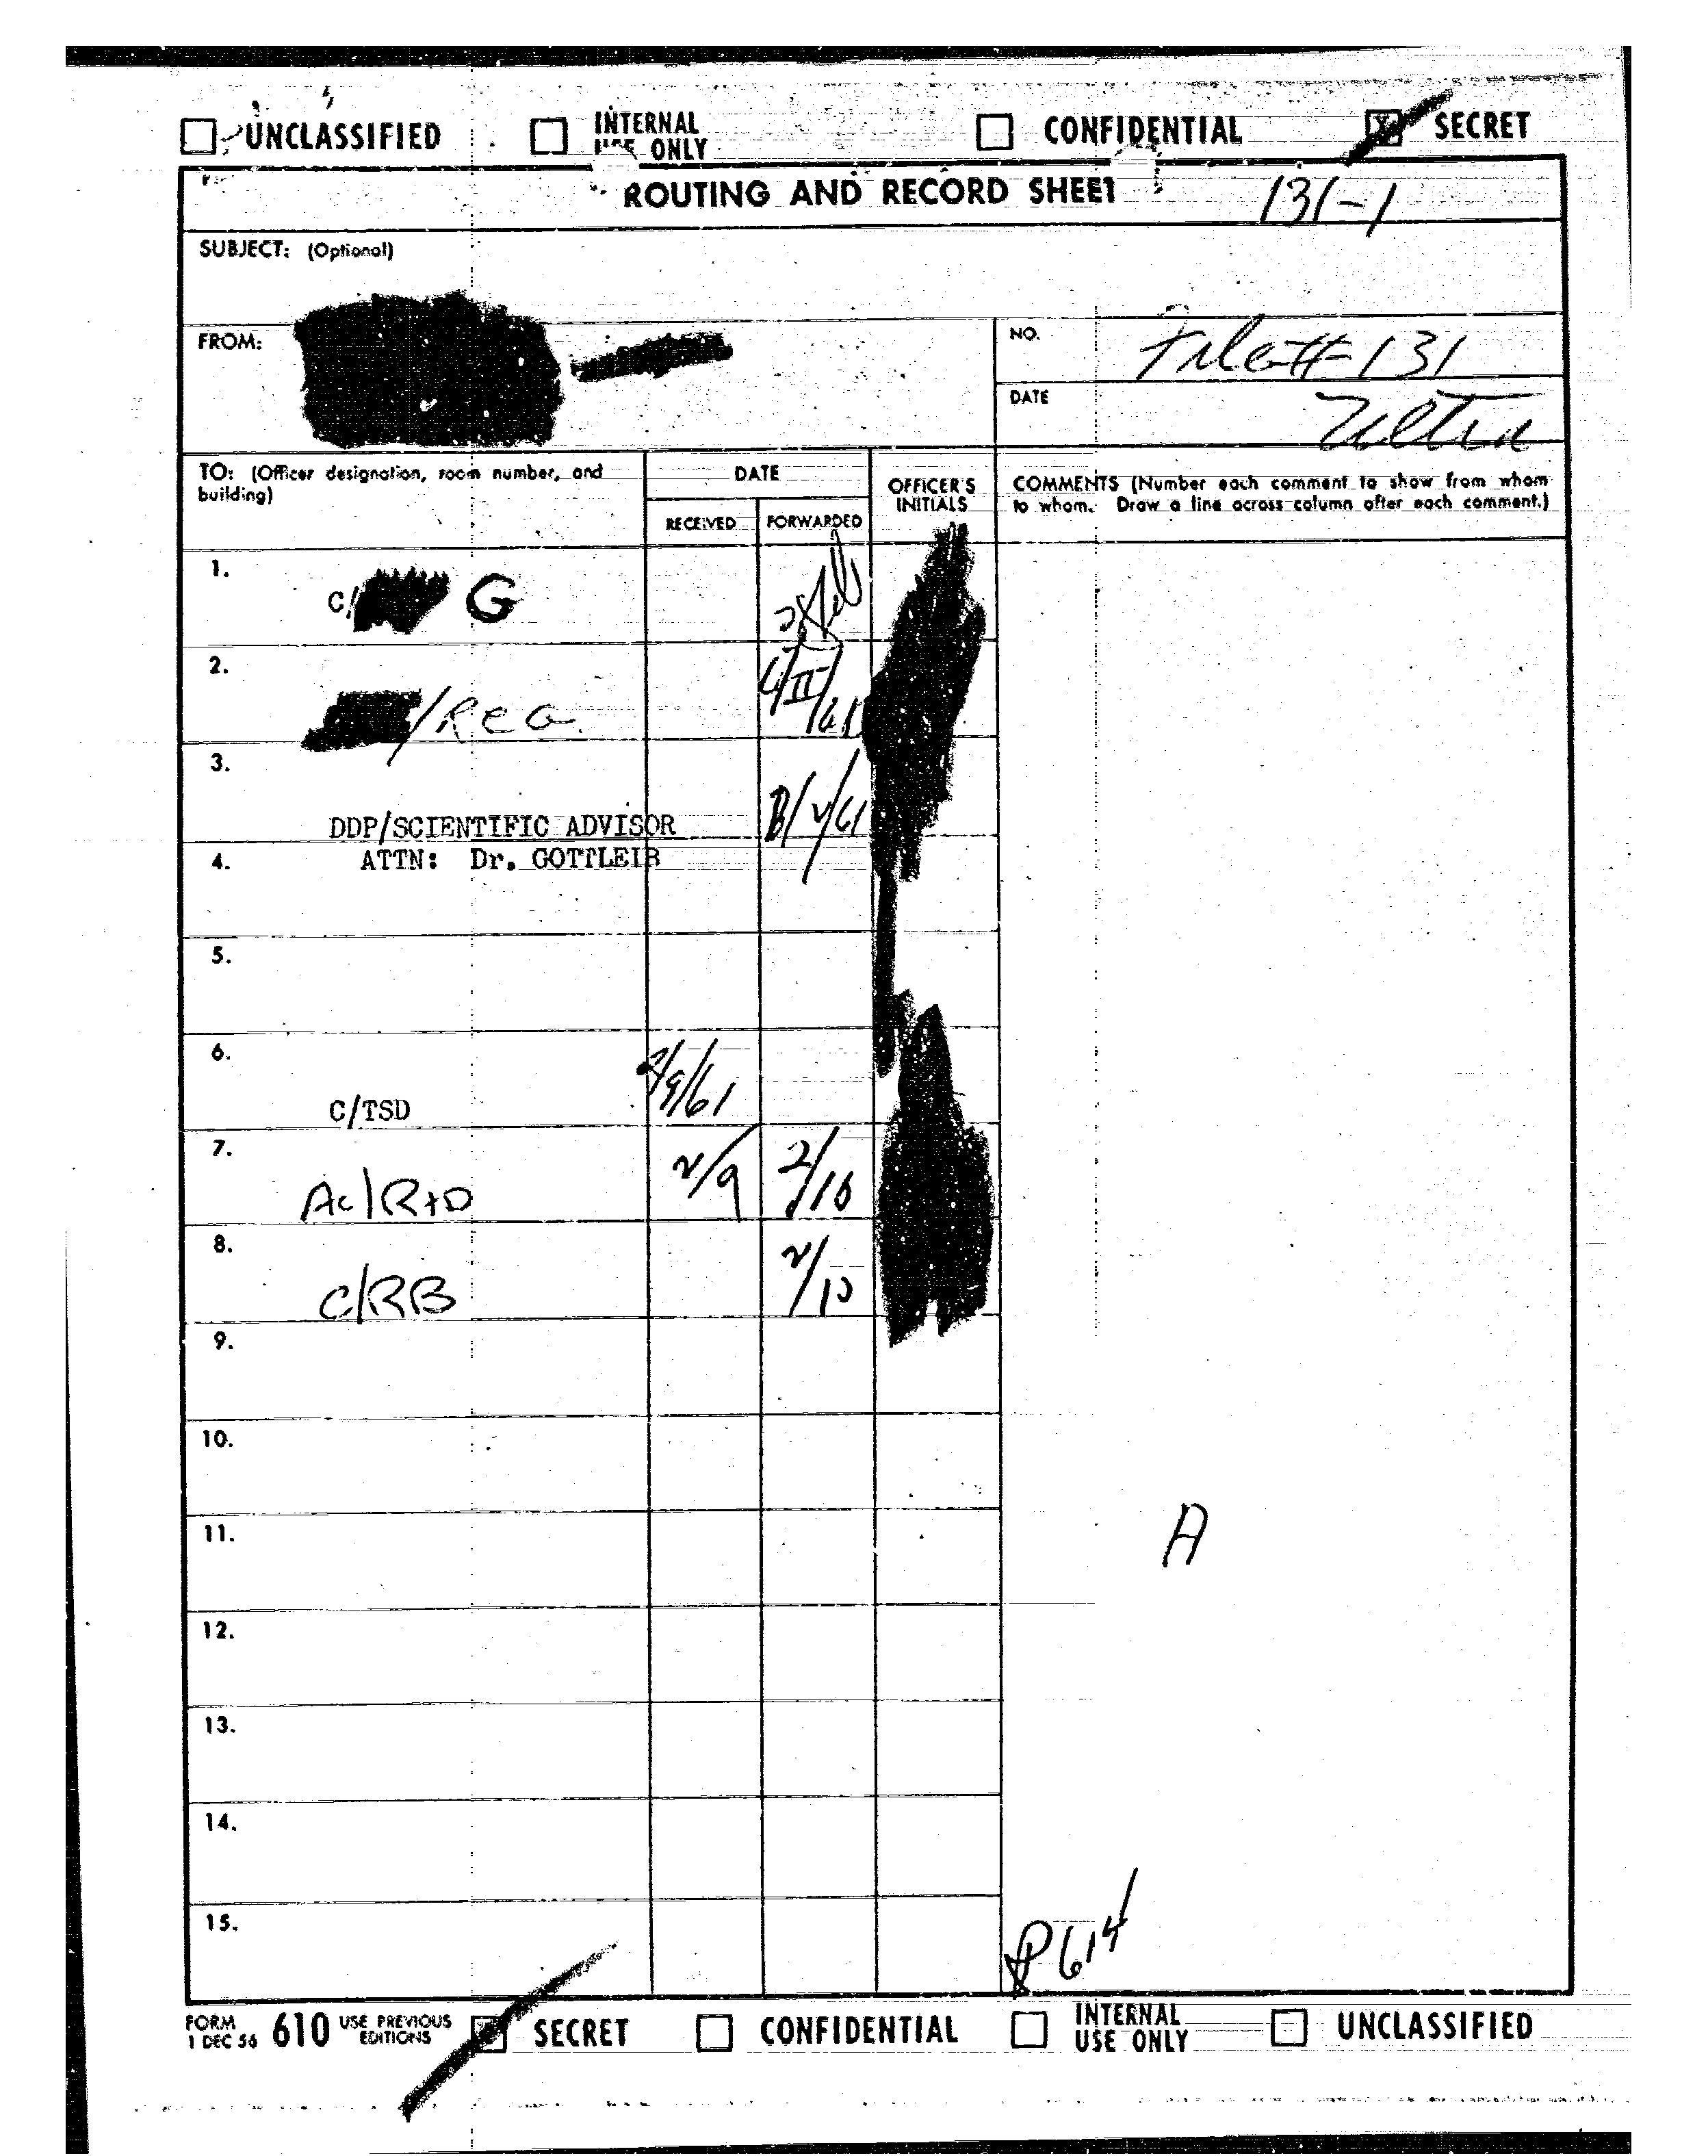 UNCLASSIFIED INTERNAL USE ONLY CONFIDENTIAL X SECRET
ROUTING AND RECORD SHEET 131-1
SUBJECT: (Optional)
FROM:
NO. File # 131
DATE Ultra
TO: (Officer designation, room number, and building)
DATE
RECEIVED FORWARDED
OFFICER'S INITIALS
COMMENTS (Number each comment to show from whom to whom. Draw a line across column after each comment.)
1. C/ G
2. /REG.
3.
DDP/SCIENTIFIC ADVISOR
4. ATTN: Dr. GOTTLEIB
5.
6.
C/TSD 2/9/61
7.
AC/R+D 2/9 2/10
8.
C/RB 2/10
9.
10.
11. A
12.
13.
14.
15.
P614
FORM 1 DEC 56 610 USE PREVIOUS EDITIONS X SECRET CONFIDENTIAL INTERNAL USE ONLY UNCLASSIFIED